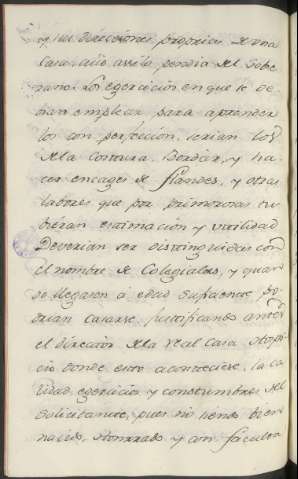 y las direcciones propias de una
casa, cuio asilo pendia del Sobe
rano. Los egercicios en que se de
vian emplear para aprender
los con perfeccion, serian los
de la Costura, Bordar, y ha
cer encages de flandes, y otras
labores que por primorosas tu
bieran estimacion y utilidad
Deverian ser distinguidas con
el nombre de Colegialas, y quan
do llegasen á edad suficiente po
drian casarse, justificando antes
el director de la real Casa Hospi
cio donde esto aconteciere, la ca
lidad, egercicio y constumbres del
Solicitante, pues no siendo bien
nacido, honrrado y con facultá